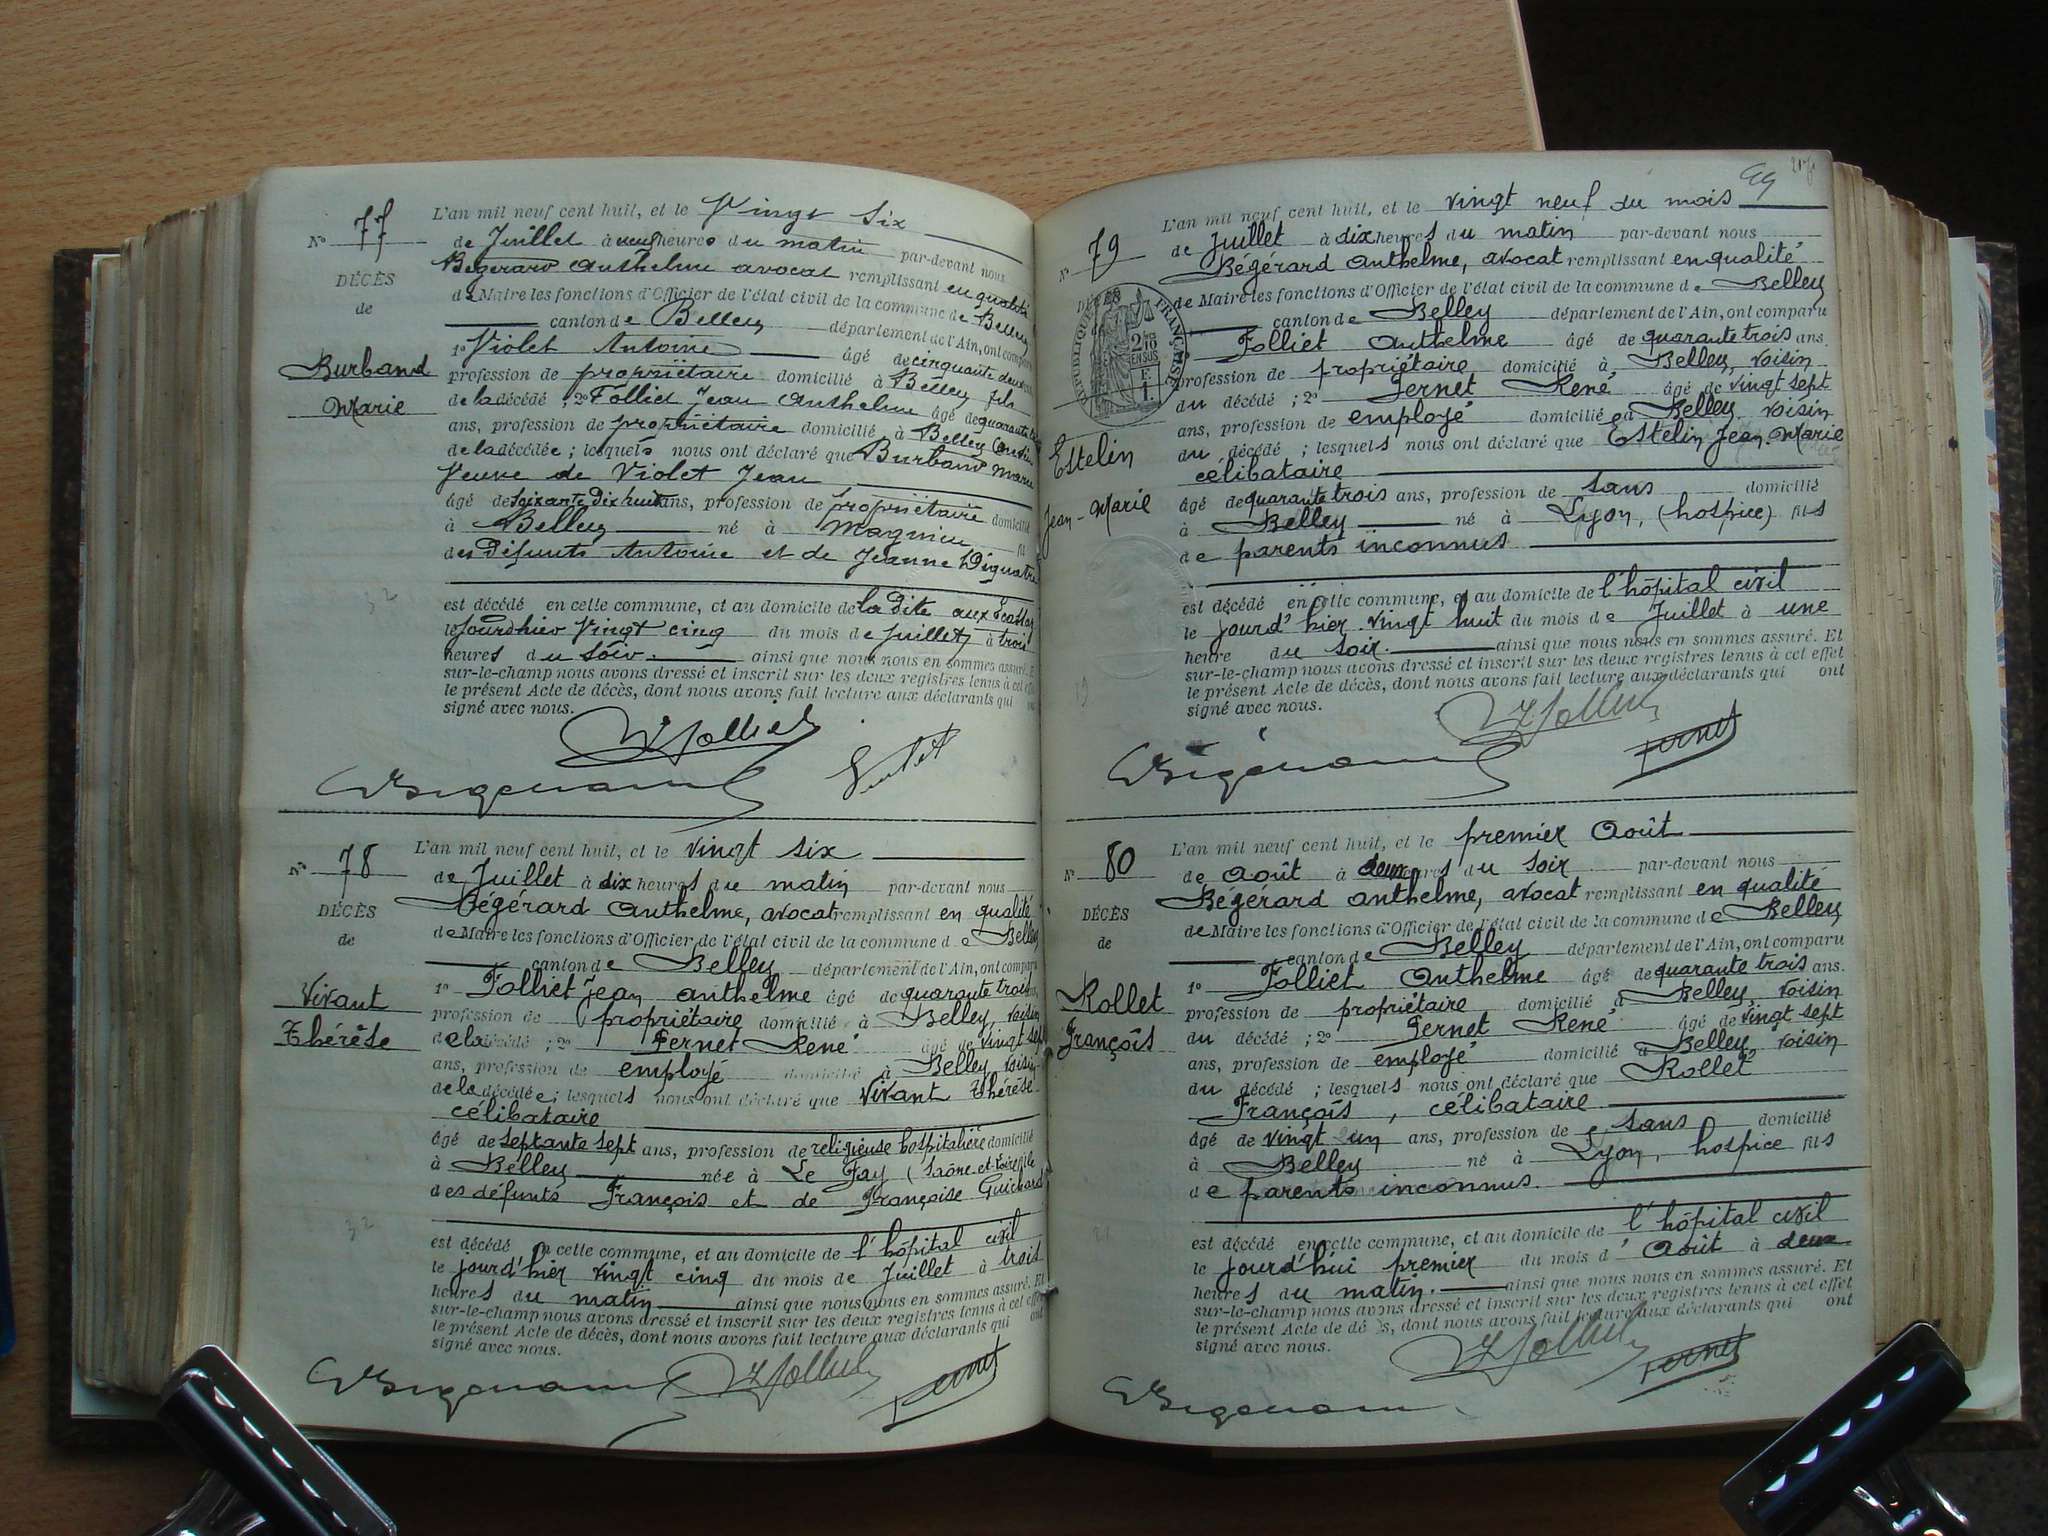 N° 77
DÉCÈS
de
Burband
Marie
L'an mil neuf cent huit, et le Vingt Six
de Juillet à neuf heures du matin par-devant nous
Bégérard Anthelme avocat remplissant en qualité
de Maire les fonctions d'Officier de l'état civil de la commune de Belley
canton de Belley département de l'Ain, ont comparu
1° Violet Antoine âgé de cinquante deux
profession de propriétaire domicilié à Belley fils
de la décédé ; 2° Folliet Jean Anthelme âgé de quarante
ans, profession de propriétaire domicilié à Belley
de la décédée ; lesquels nous ont déclaré que Burband Marie
Veuve de Violet Jean
âgé de soixante dix huit ans, profession de propriétaire domicilié
à Belley né à Magnieu
des défunts Antoine et de Jeanne
est décédé en cette commune, et au domicile de la dite aux
le jourd'hier Vingt cinq du mois de Juillet à trois
heures du soir. ainsi que nous nous en sommes assuré. Et
sur-le-champ nous avons dressé et inscrit sur les deux registres tenus à cet effet
le présent Acte de décès, dont nous avons fait lecture aux déclarants qui
signé avec nous.
N° 78
DÉCÈS
de
Vivant
Thérèse
L'an mil neuf cent huit, et le vingt six
de Juillet à dix heures du matin par-devant nous
Bégérard Anthelme, avocat remplissant en qualité
de Maire les fonctions d'Officier de l'état civil de la commune de Belley
canton de Belley département de l'Ain, ont comparu
1° Folliet Jean Anthelme âgé de quarante trois ans,
profession de propriétaire domicilié à Belley, voisin
de la décédé ; 2° Pernet René âgé de vingt sept
ans, profession de employé domicilié à Belley, voisin
de la décédée ; lesquels nous ont déclaré que Vivant Thérèse
célibataire
âgé de septante sept ans, profession de religieuse hospitalière domicilié
à Belley née à Le Fay (Saône-et-Loire) fille
des défunts François et de Françoise Guichard
est décédé en cette commune, et au domicile de l'hôpital civil
le jourd'hier vingt cinq du mois de Juillet à trois
heures du matin ainsi que nous nous en sommes assuré. Et
sur-le-champ nous avons dressé et inscrit sur les deux registres tenus à cet effet
le présent Acte de décès, dont nous avons fait lecture aux déclarants qui ont
signé avec nous.
Pernet
99
N° 79
DÉCÈS
RÉPUBLIQUE FRANÇAISE
2/10 EN SUS
Estelin
Jean-Marie
L'an mil neuf cent huit, et le vingt neuf du mois
de Juillet à dix heures du matin par-devant nous
Bégérard Anthelme, avocat remplissant en qualité
de Maire les fonctions d'Officier de l'état civil de la commune de Belley
canton de Belley département de l'Ain, ont comparu
Folliet Anthelme âgé de quarante trois ans.
profession de propriétaire domicilié à Belley, voisin
du décédé ; 2° Pernet René âgé de vingt sept
ans, profession de employé domicilié à Belley voisin
du décédé ; lesquels nous ont déclaré que Estelin Jean-Marie
célibataire
âgé de quarante trois ans, profession de sans domicilié
à Belley né à Lyon, (hospice) fils
de parents inconnus
est décédé en cette commune, et au domicile de l'hôpital civil
le jourd'hier vingt huit du mois de Juillet à une
heure du soir. ainsi que nous nous en sommes assuré. Et
sur-le-champ nous avons dressé et inscrit sur les deux registres tenus à cet effet
le présent Acte de décès, dont nous avons fait lecture aux déclarants qui ont
signé avec nous.
Pernet
N° 80
DÉCÈS
de
Rollet
François
L'an mil neuf cent huit, et le premier Août
de Août à deux heures du soir par-devant nous
Bégérard Anthelme, avocat remplissant en qualité
de Maire les fonctions d'Officier de l'état civil de la commune de Belley
canton de Belley département de l'Ain, ont comparu
1° Folliet Anthelme âgé de quarante trois ans.
profession de propriétaire domicilié à Belley voisin
du décédé ; 2° Pernet René âgé de vingt sept
ans, profession de employé domicilié à Belley voisin
du décédé ; lesquels nous ont déclaré que Rollet
François, célibataire
âgé de vingt un ans, profession de sans domicilié
à Belley né à Lyon, hospice fils
de parents inconnus.
est décédé en cette commune, et au domicile de l'hôpital civil
le jourd'hui premier du mois d'Août à deux
heures du matin. ainsi que nous nous en sommes assuré. Et
sur-le-champ nous avons dressé et inscrit sur les deux registres tenus à cet effet
le présent Acte de décès, dont nous avons fait lecture aux déclarants qui ont
signé avec nous.
Pernet